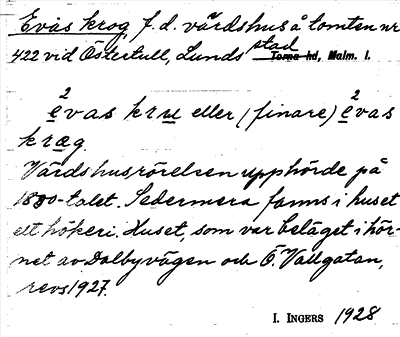 Evas krog, f. d. värdshus å tomten nr
422 vid Östertull, Lunds stad Torna hd, Malm. l.
2 2
evas kru eller (finare) evas
kræg.
Värdshusrörelsen upphörde på
1800-talet. Sedermera fanns i huset
ett hökeri. Huset, som var beläget i hör-
net av Dalbyvägen och Ö. Vallgatan,
revs 1927.
I. INGERS 1928